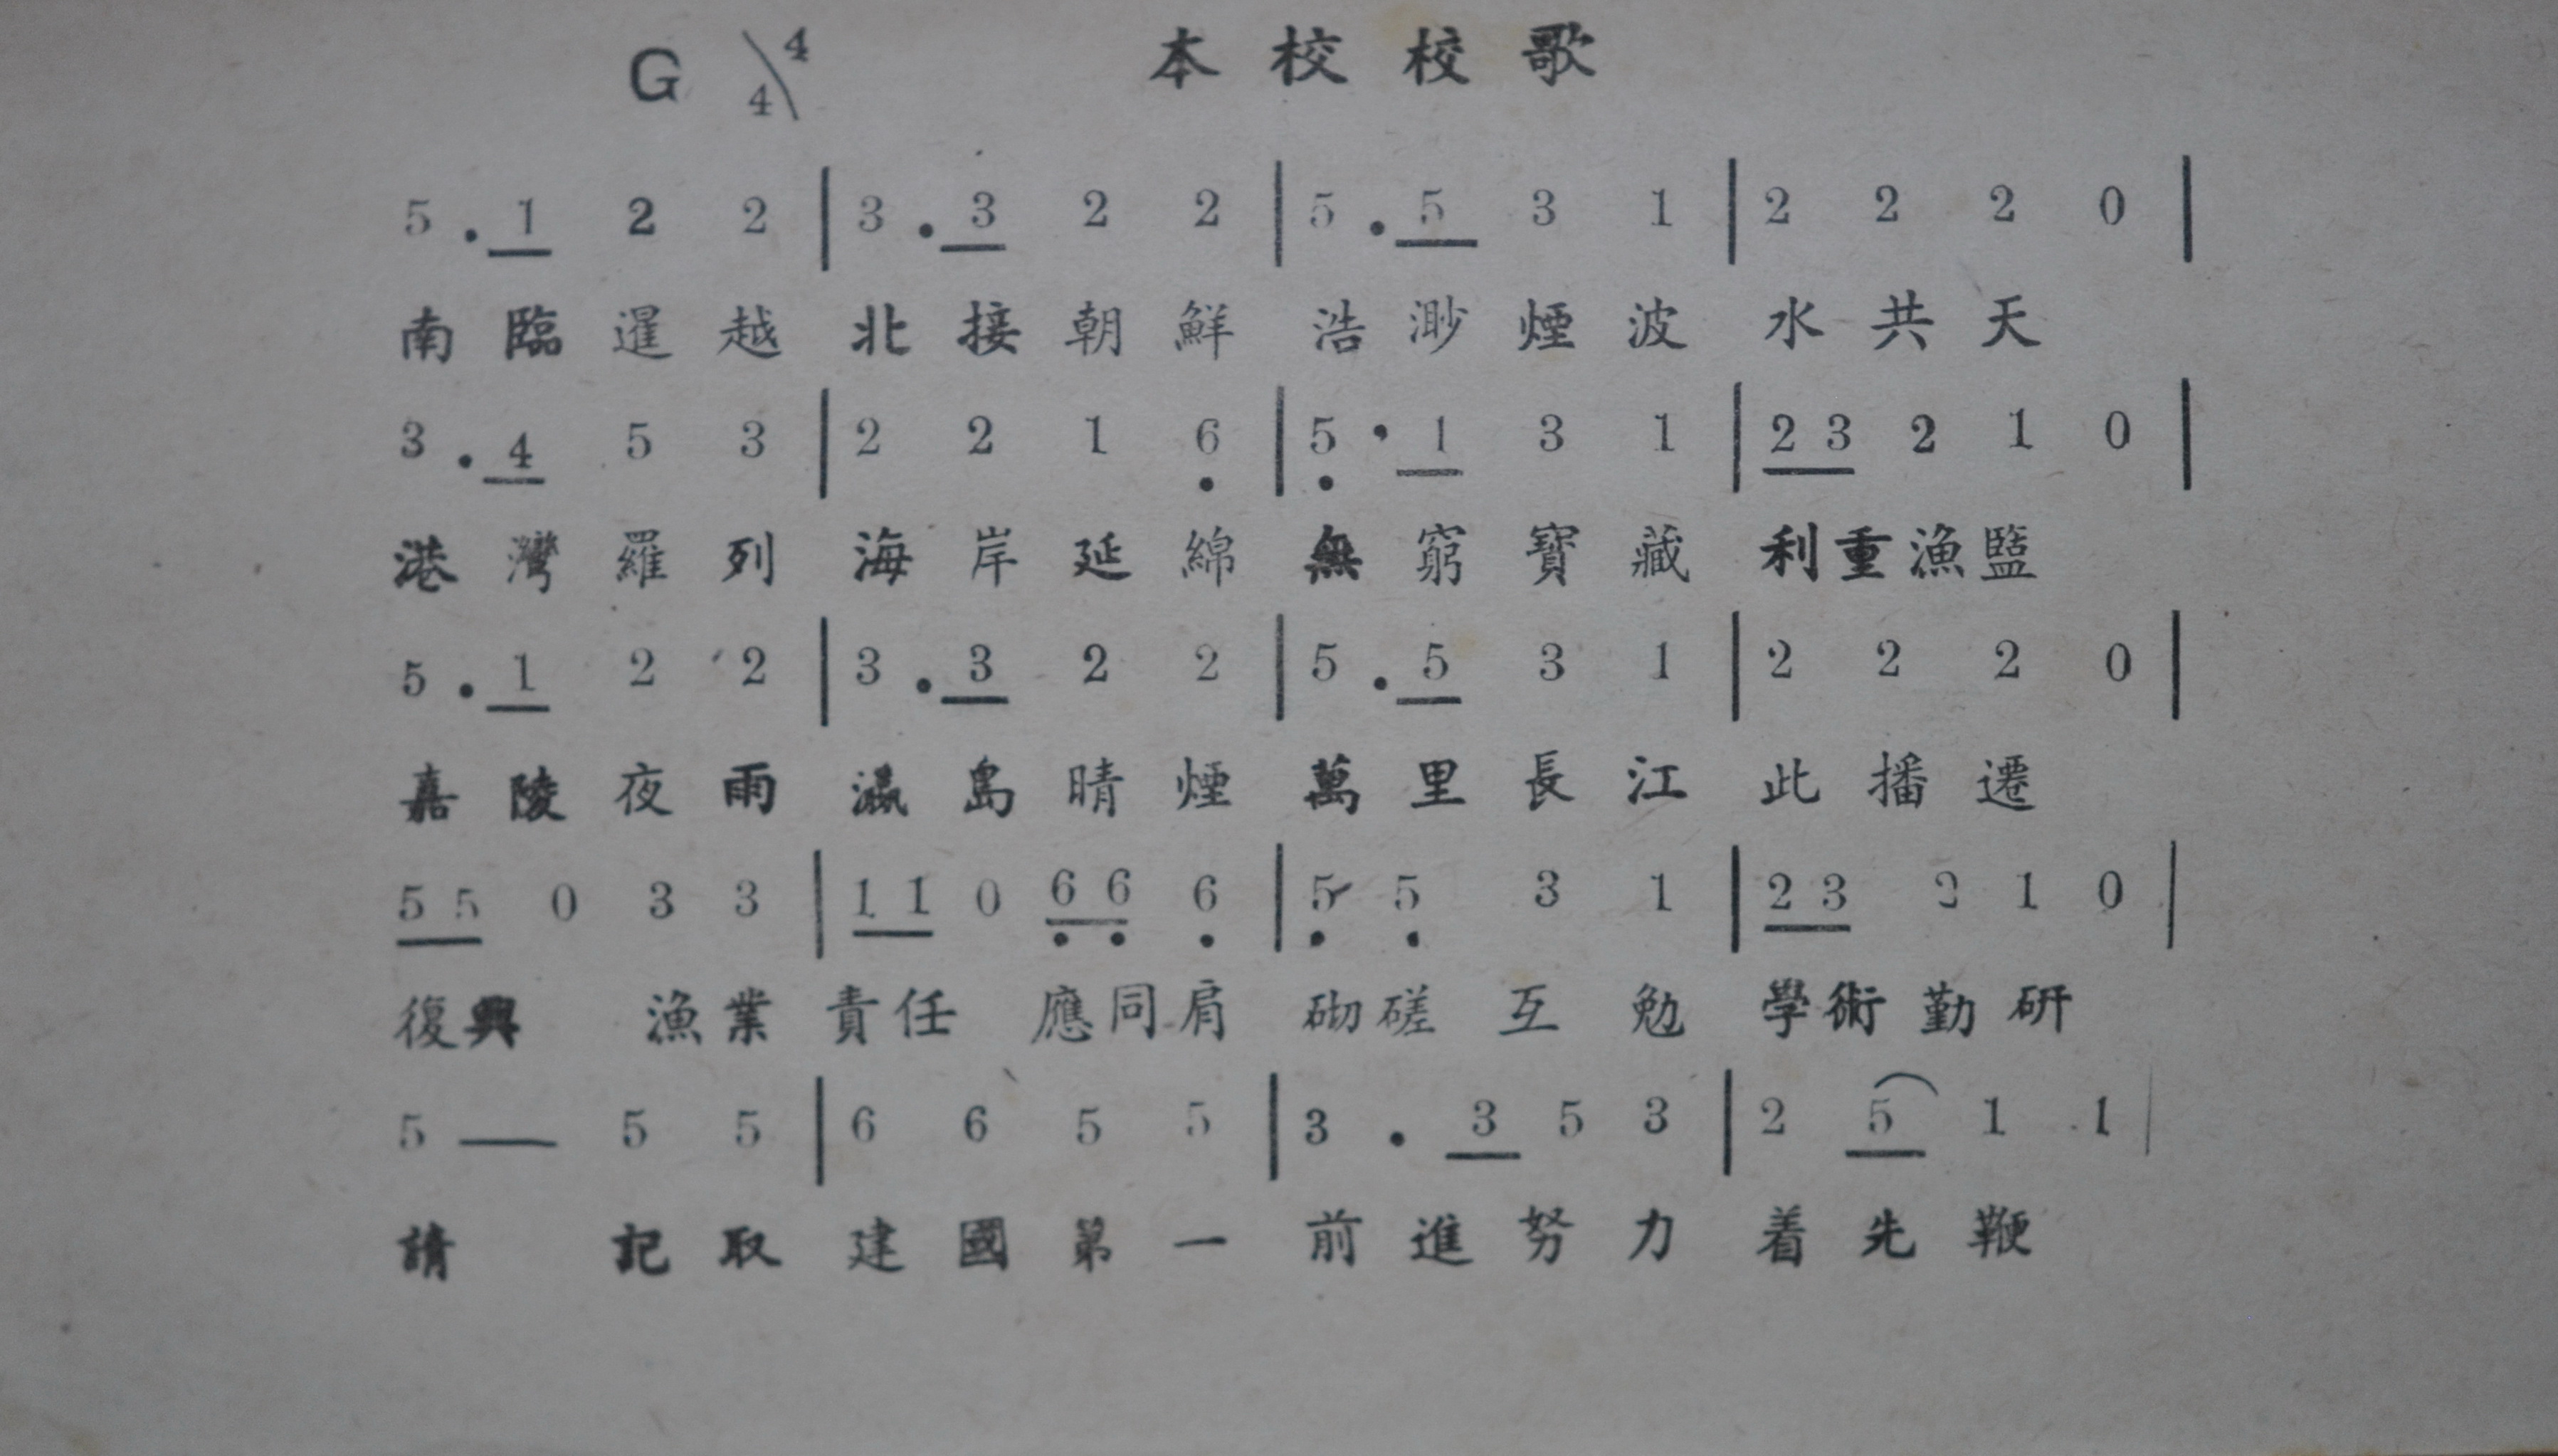 G 4/4 本校校歌
5 . 1 2 2 | 3 . 3 2 2 | 5 . 5 3 1 | 2 2 2 0 |
南臨暹越 北接朝鮮 浩渺煙波 水共天
3 . 4 5 3 | 2 2 1 6 | 5 . 1 3 1 | 2 3 2 1 0 |
港灣羅列 海岸延綿 無窮寶藏 利重漁盬
5 . 1 2 2 | 3 . 3 2 2 | 5 . 5 3 1 | 2 2 2 0 |
嘉陵夜雨 瀛島晴煙 萬里長江 此播遷
5 5 0 3 3 | 1 1 0 6 6 6 | 5 5 3 1 | 2 3 2 1 0 |
復興 漁業 責任 應同肩 砌磋互勉 學術勤研
5 — 5 5 | 6 6 5 5 | 3 . 3 5 3 | 2 5 1 1 |
請 記取 建國第一 前進努力 着先鞭